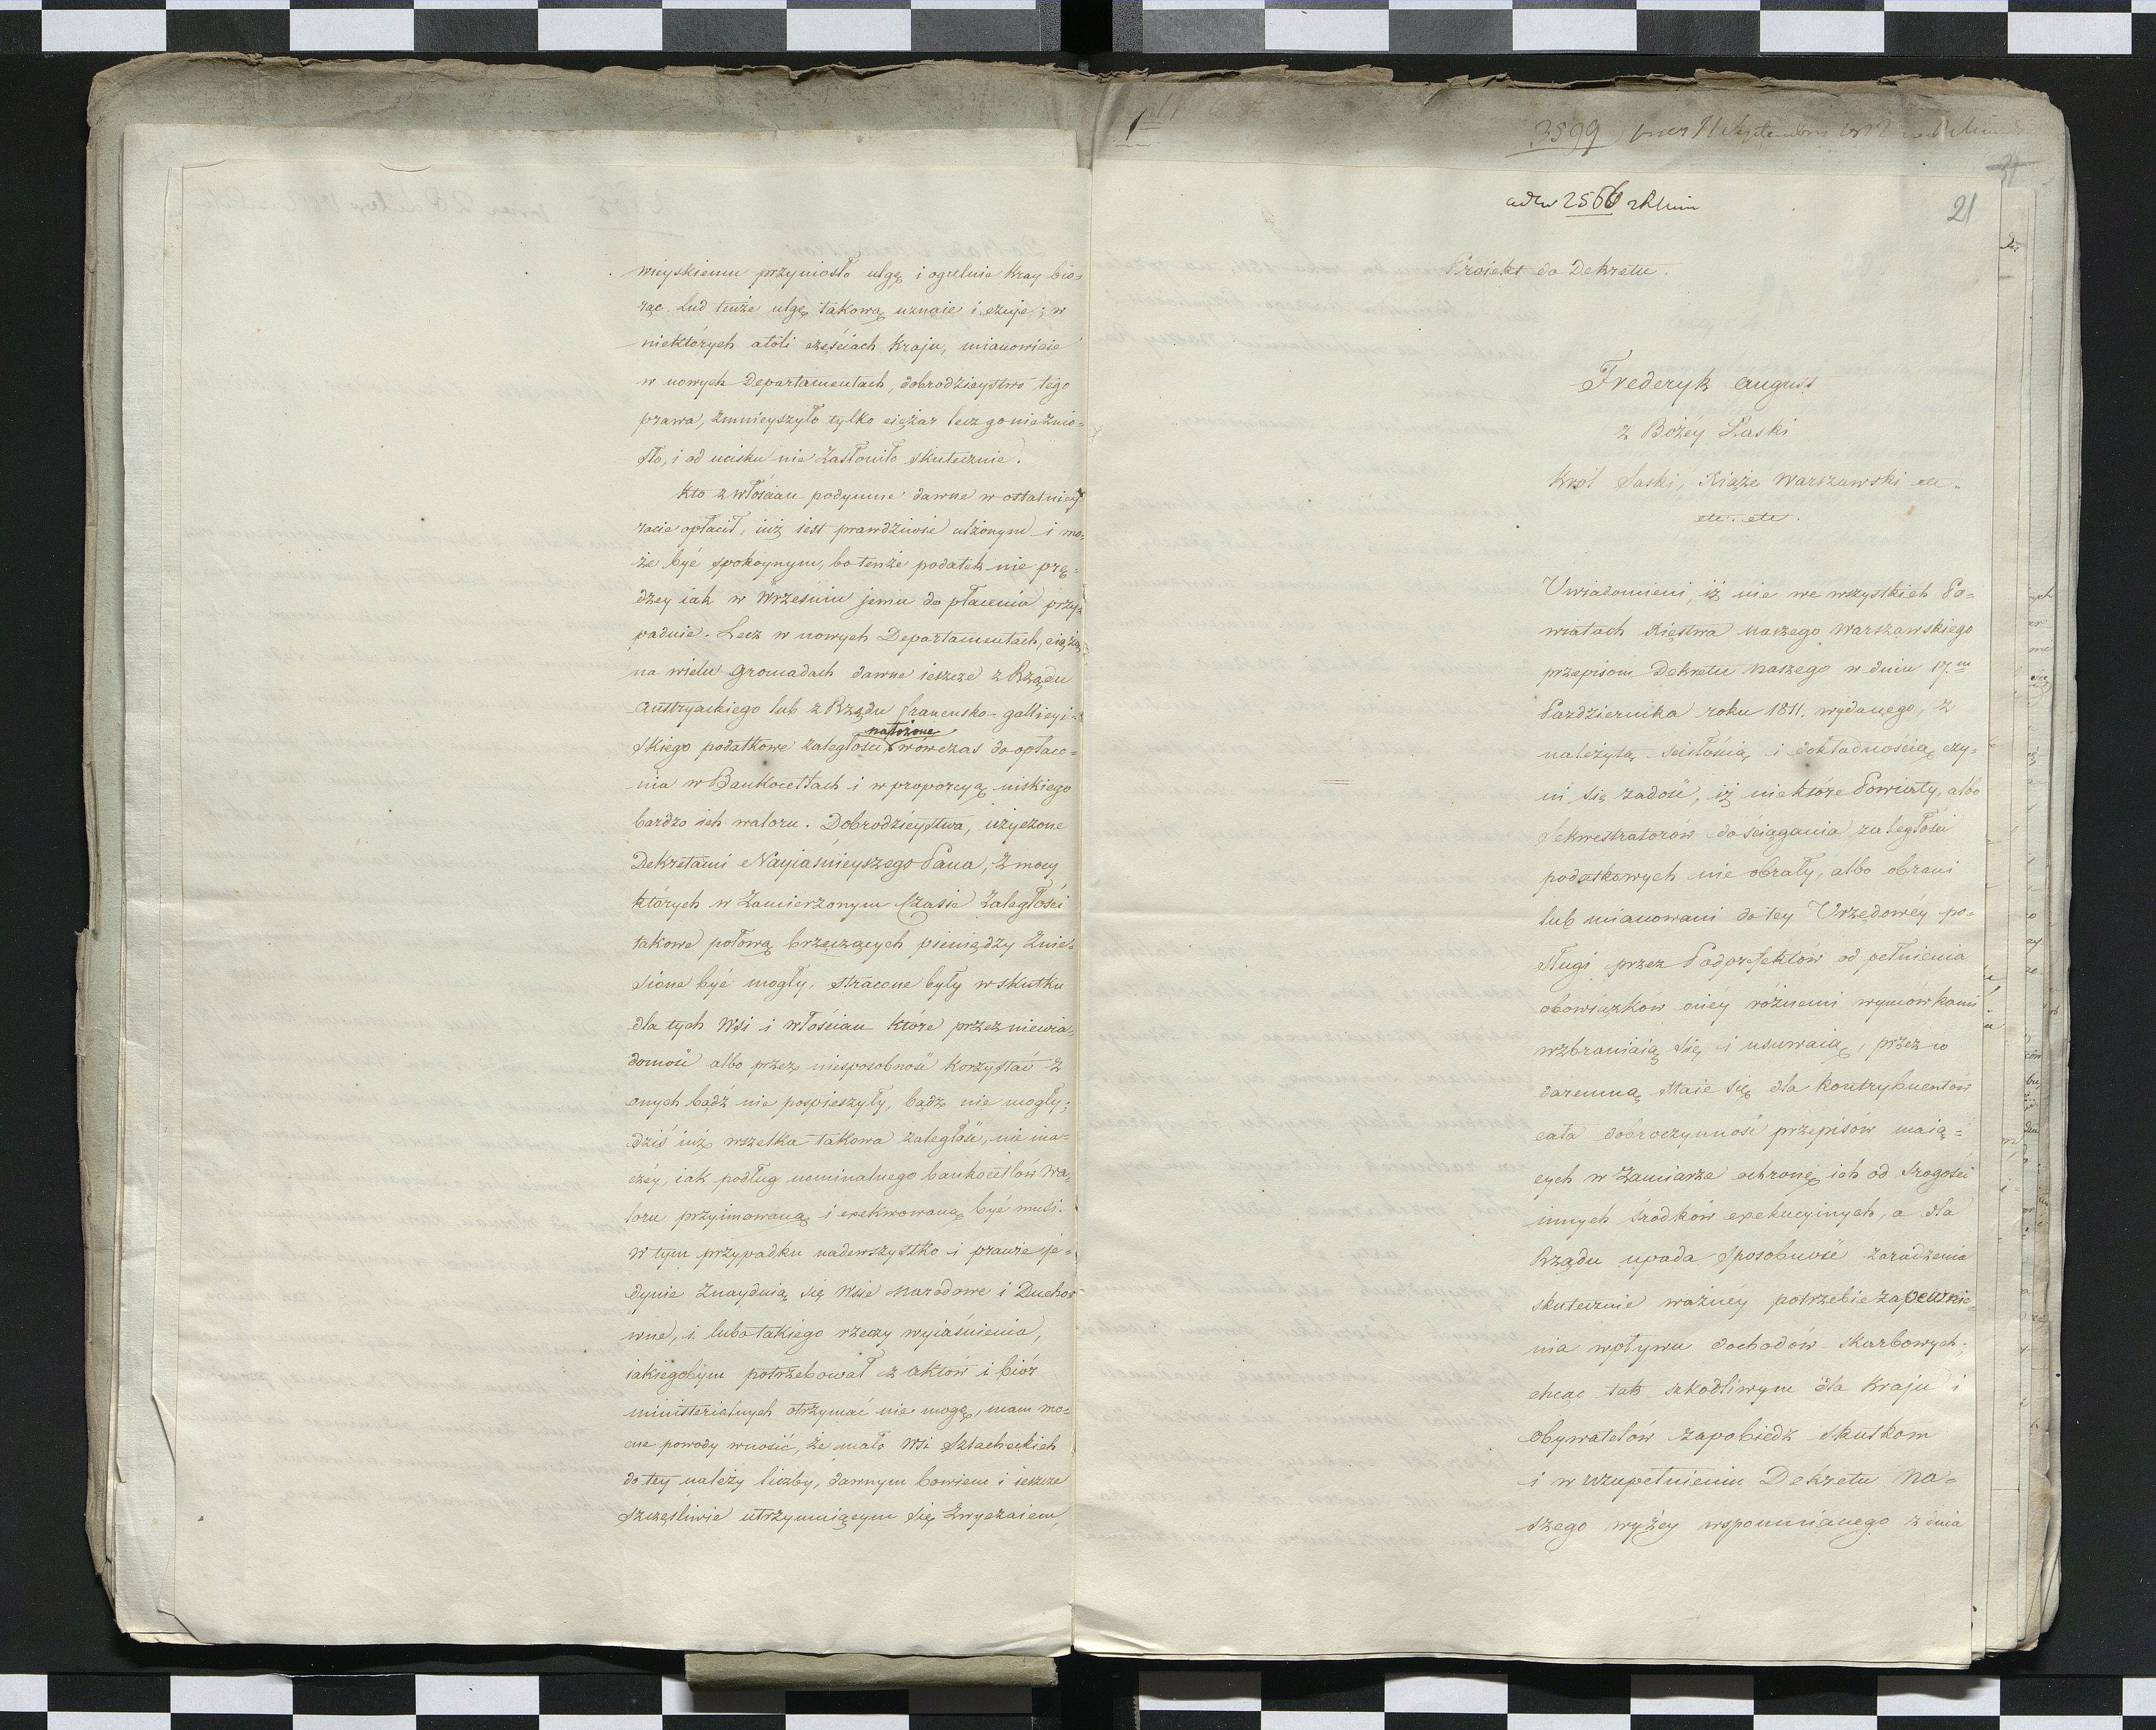 wieyskiemu przyniosło ulgę i ogulnie Kray bio=
rąc lud tenże ulgę takową uznaie i czuje; w
niektórych atoli częściach Kraju, mianowicie
w nowych Departamentach, dobrodzieystwo tego
prawa, zmnieyszyło tylko ciężar lecz go nie znio=
sło, i od ucisku nie zasłoniło skutecznie.
Kto z włościan podymne dawne w ostatniey
racie opłacił, iuż iest prawdziwie ulżonym i mo=
że być spokoynym, bo tenże podatek nie prę=
dzey iak w Wrześniu jemu do płacenia przy=
padnie. Lecz w nowych Departamentach, ciążą
na wielu Gromadach dawne ieszcze z Rządu
Austryackiego lub z Rządu francusko-gallicyi=
nałożone
skiego podatkowe zaległości wówczas do opłace=
nia w Bankocetlach i w proporcyą niskiego
bardzo ich waloru. Dobrodzieystwa, użyczone
Dekretami Nayiaśnieyszego Pana, z mocy
których w Zamierzonym Czasie Zaległości
takowe połową brzęczących pieniędzy Znie=
sione być mogły, stracone były w skutku
dla tych Wsi i włościan które przez niewia=
domość albo przez niesposobność korzystać z
onych bądź nie pospieszyły, bądź nie mogły;
dziś iuż wszelka takowa zaległość, nie ina=
czéy, iak podług nominalnego bankocetlów wa=
loru przyimowaną i exekwowaną być musi.
W tym przypadku nadewszystko i prawie je=
dynie Znayduią się Wsie Narodowe i Ducho=
wne, i lubo takiego rzeczy wyiaśnienia,
iakiegobym potrzebował z aktów i biór
ministerialnych otrzymać nie mogę, mam mo=
cne powody wnosić, że mało Wsi Szlacheckich
do tey należy liczby, dawnym bowiem i ieszcze
szczęśliwie utrzymuiącym się Zwyczaiem,
3599
ad No 2566
21
Proiekt do Dekretu.
Frederyk August
z Bożéy Łaski
Król Saski, Xiąże Warszawski etc.
etc. etc.
Uwiadomieni, iż nie we wszystkich Po=
wiatach Xięstwa naszego Warszawskiego
przepisom Dekretu Naszego w dniu 17.m
Października roku 1811. wydanego, z
należytą ścisłością i dokładnością czy=
ni się zadość, iż niektóre Powiaty, albo
Sekwestratorów do ściągania zaległości
podatkowych nie obrały, albo obrani
lub mianowani do tey Urzędowéy po=
sługi przez Podprefektów od pełnienia
obowiązków onéy różnemi wymówkami
wzbraniaią się i usuwaią, przez co
daremną staie się dla kontrybuentów
cała dobroczynność przepisów maią=
cych w Zamiarze ochronę ich od srogości
innych środków exekucyinych, a dla
Rządu upada sposobność zaradzenia
skutecznie ważnéy potrzebie zapewnie=
nia wpływu dochodów skarbowych;
chcąc tak szkodliwym dla Kraju i
Obywatelów zapobiedz skutkom
i w Uzupełnieniu Dekretu Na=
szego wyżey wspomnianego z dnia